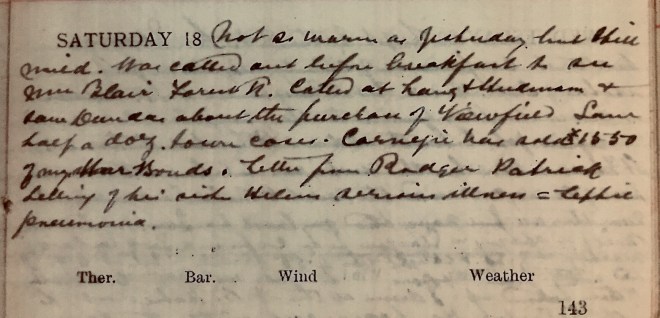 SATURDAY 18 Not so warm as yesterday but still
mild. Was called out before breakfast to see
Mrs Blair Forest R. Called at Lang & Hudsons &
saw Dundas about the purchase of Viewfield Saw
half a doz. town cases. Carnegie has sold £1550
of my War Bonds. Letter from Rodger Patrick
telling of his Helens serious illness = septic
pneumonia.
Ther. Bar. Wind Weather
143